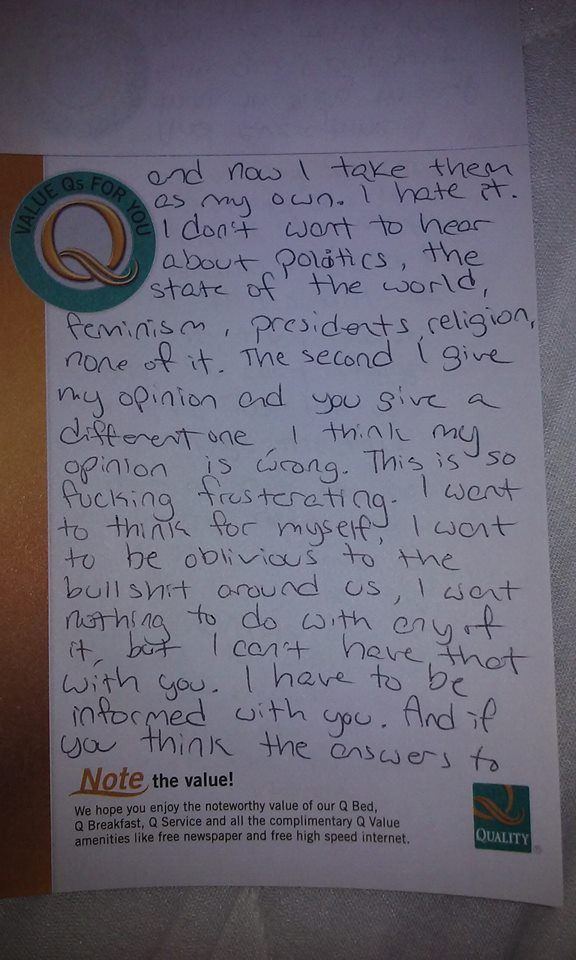 VALUE Qs FOR YOU
Q
and now I take them
as my own. I hate it.
I don't want to hear
about politics, the
state of the world,
feminism, presidents, religion,
none of it. The second I give
my opinion and you give a
different one, I think my
opinion is wrong. This is so
fucking frusterating. I want
to think for myself, I want
to be oblivious to the
bullshit around us, I want
nothing to do with any of
it, but I can't have that
with you. I have to be
informed with you. And if
you think the answers to
Note the value!
We hope you enjoy the noteworthy value of our Q Bed,
Q Breakfast, Q Service and all the complimentary Q Value
amenities like free newspaper and free high speed internet.
QUALITY